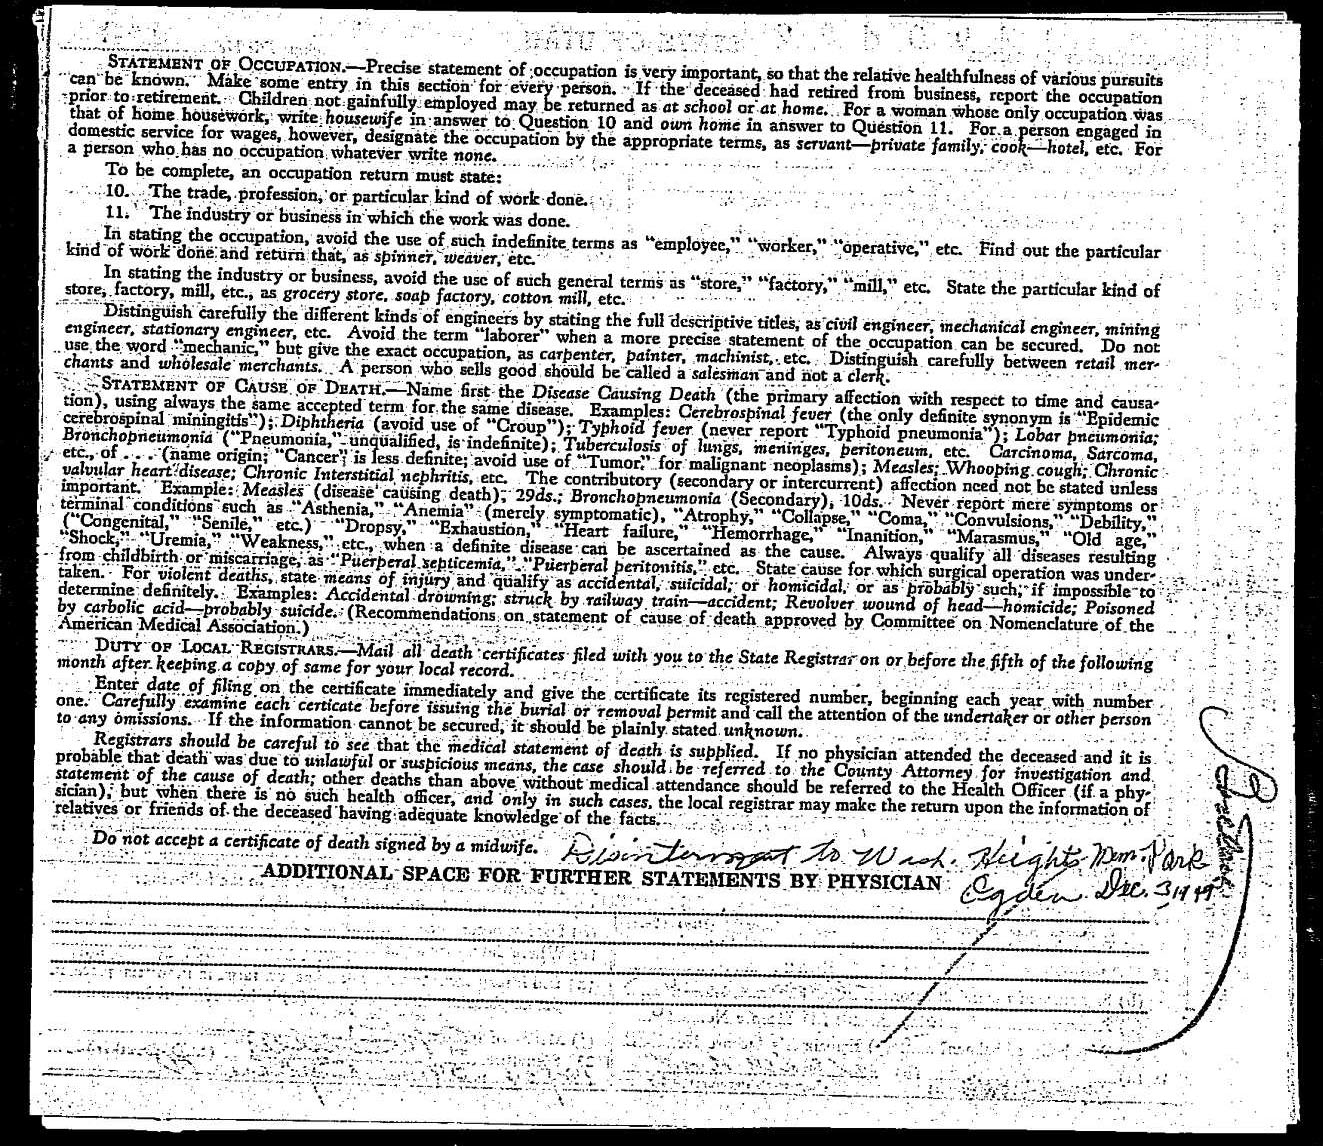 STATEMENT OF OCCUPATION.—Precise statement of occupation is very important, so that the relative healthfulness of various pursuits
can be known. Make some entry in this section for every person. If the deceased had retired from business, report the occupation
prior to retirement. Children not gainfully employed may be returned as at school or at home. For a woman whose only occupation was
that of home housework, write housewife in answer to Question 10 and own home in answer to Question 11. For a person engaged in
domestic service for wages, however, designate the occupation by the appropriate terms, as servant—private family, cook—hotel, etc. For
a person who has no occupation whatever write none.
To be complete, an occupation return must state:
10. The trade, profession, or particular kind of work done.
11. The industry or business in which the work was done.
In stating the occupation, avoid the use of such indefinite terms as "employee," "worker," "operative," etc. Find out the particular
kind of work done and return that, as spinner, weaver, etc.
In stating the industry or business, avoid the use of such general terms as "store," "factory," "mill," etc. State the particular kind of
store, factory, mill, etc., as grocery store, soap factory, cotton mill, etc.
Distinguish carefully the different kinds of engineers by stating the full descriptive titles, as civil engineer, mechanical engineer, mining
engineer, stationary engineer, etc. Avoid the term "laborer" when a more precise statement of the occupation can be secured. Do not
use the word "mechanic," but give the exact occupation, as carpenter, painter, machinist, etc. Distinguish carefully between retail mer-
chants and wholesale merchants. A person who sells good should be called a salesman and not a clerk.
STATEMENT OF CAUSE OF DEATH.—Name first the Disease Causing Death (the primary affection with respect to time and causa-
tion), using always the same accepted term for the same disease. Examples: Cerebrospinal fever (the only definite synonym is "Epidemic
cerebrospinal miningitis"); Diphtheria (avoid use of "Croup"); Typhoid fever (never report "Typhoid pneumonia"); Lobar pneumonia;
Bronchopneumonia ("Pneumonia," unqualified, is indefinite); Tuberculosis of lungs, meninges, peritoneum, etc. Carcinoma, Sarcoma,
etc., of . . . . (name origin; "Cancer" is less definite; avoid use of "Tumor," for malignant neoplasms); Measles; Whooping cough; Chronic
valvular heart disease; Chronic Interstitial nephritis, etc. The contributory (secondary or intercurrent) affection need not be stated unless
important. Example: Measles (disease causing death); 29ds.; Bronchopneumonia (Secondary), 10ds. Never report mere symptoms or
terminal conditions such as "Asthenia," "Anemia" (merely symptomatic), "Atrophy," "Collapse," "Coma," "Convulsions," "Debility,"
("Congenital," "Senile," etc.) "Dropsy," "Exhaustion," "Heart failure," "Hemorrhage," "Inanition," "Marasmus," "Old age,"
"Shock," "Uremia," "Weakness," etc., when a definite disease can be ascertained as the cause. Always qualify all diseases resulting
from childbirth or miscarriage, as "Puerperal septicemia," "Puerperal peritonitis," etc. State cause for which surgical operation was under-
taken. For violent deaths, state means of injury and qualify as accidental, suicidal, or homicidal, or as probably such, if impossible to
determine definitely. Examples: Accidental drowning; struck by railway train—accident; Revolver wound of head—homicide; Poisoned
by carbolic acid—probably suicide. (Recommendations on statement of cause of death approved by Committee on Nomenclature of the
American Medical Association.)
DUTY OF LOCAL REGISTRARS.—Mail all death certificates filed with you to the State Registrar on or before the fifth of the following
month after keeping a copy of same for your local record.
Enter date of filing on the certificate immediately and give the certificate its registered number, beginning each year with number
one. Carefully examine each certicate before issuing the burial or removal permit and call the attention of the undertaker or other person
to any omissions. If the information cannot be secured, it should be plainly stated unknown.
Registrars should be careful to see that the medical statement of death is supplied. If no physician attended the deceased and it is
probable that death was due to unlawful or suspicious means, the case should be referred to the County Attorney for investigation and
statement of the cause of death; other deaths than above without medical attendance should be referred to the Health Officer (if a phy-
sician), but when there is no such health officer, and only in such cases, the local registrar may make the return upon the information of
relatives or friends of the deceased having adequate knowledge of the facts.
Do not accept a certificate of death signed by a midwife.
Disinterment to Wash. Heights Mem. Park
ADDITIONAL SPACE FOR FURTHER STATEMENTS BY PHYSICIAN
Ogden Dec. 3, 1949